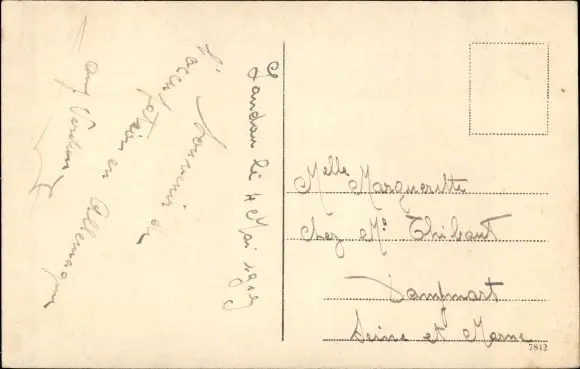 Landau le 4 Mai 1919
Souvenir de
l'occupation
en Allemagne
Melle Marguerite
chez Mr Thibaut
Dampmart
Seine et Marne
7842